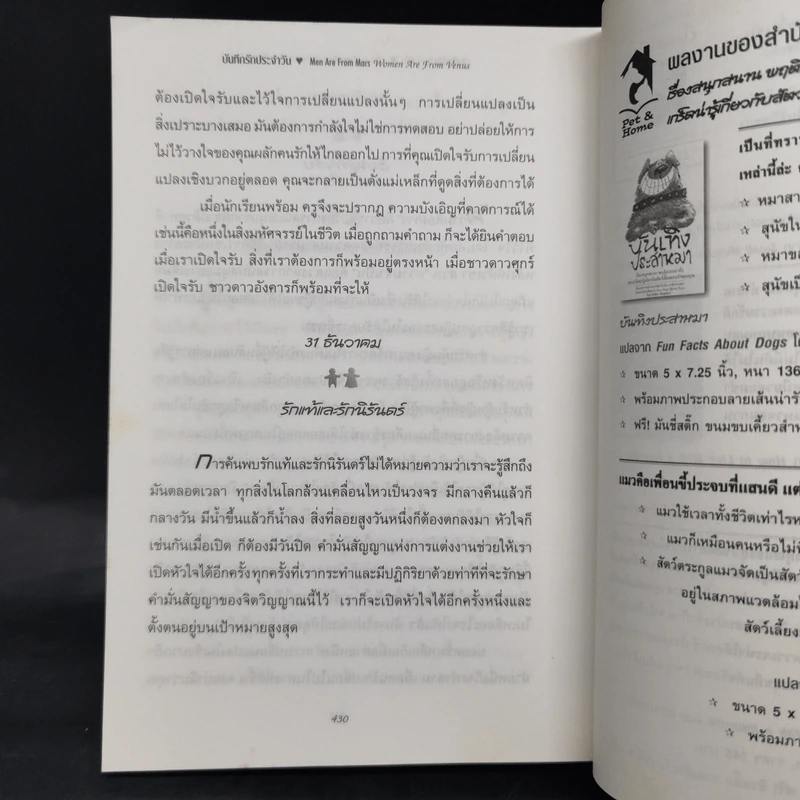 บันทึกรักประจำวัน ♥ Men Are From Mars Women Are From Venus
ต้องเปิดใจรับและไว้ใจการเปลี่ยนแปลงนั้นๆ การเปลี่ยนแปลงเป็น
สิ่งเปราะบางเสมอ มันต้องการกำลังใจไม่ใช่การทดสอบ อย่าปล่อยให้การ
ไม่ไว้วางใจของคุณผลักคนรักให้ไกลออกไป การที่คุณเปิดใจรับการเปลี่ยน
แปลงเชิงบวกอยู่ตลอด คุณจะกลายเป็นดั่งแม่เหล็กที่ดูดสิ่งที่ต้องการได้
เมื่อนักเรียนพร้อม ครูจึงจะปรากฏ ความบังเอิญที่คาดการณ์ได้
เช่นนี้คือหนึ่งในสิ่งมหัศจรรย์ในชีวิต เมื่อถูกถามคำถาม ก็จะได้ยินคำตอบ
เมื่อเราเปิดใจรับ สิ่งที่เราต้องการก็พร้อมอยู่ตรงหน้า เมื่อชาวดาวศุกร์
เปิดใจรับ ชาวดาวอังคารก็พร้อมที่จะให้
31 ธันวาคม
รักแท้และรักนิรันดร์
การค้นพบรักแท้และรักนิรันดร์ไม่ได้หมายความว่าเราจะรู้สึกถึง
มันตลอดเวลา ทุกสิ่งในโลกล้วนเคลื่อนไหวเป็นวงจร มีกลางคืนแล้วก็
กลางวัน มีน้ำขึ้นแล้วก็น้ำลง สิ่งที่ลอยสูงวันหนึ่งก็ต้องตกลงมา หัวใจก็
เช่นกันเมื่อเปิด ก็ต้องมีวันปิด คำมั่นสัญญาแห่งการแต่งงานช่วยให้เรา
เปิดหัวใจได้อีกครั้ง ทุกครั้งที่เรากระทำและมีปฏิกิริยาด้วยท่าทีที่จะรักษา
คำมั่นสัญญาของจิตวิญญาณนี้ไว้ เราก็จะเปิดหัวใจได้อีกครั้งหนึ่งและ
ตั้งตนอยู่บนเป้าหมายสูงสุด
430
Pet &
Home
ผลงานของสำนั
เรื่องสนุกสนาน พฤติ
เกร็ดน่ารู้เกี่ยวกับสัตว
เป็นที่ทรา
เหล่านี้ล่ะ
☆ หมาสา
☆ สุนัขใน
☆ หมาขอ
☆ สุนัขเป็
บันเทิง
ประสาหมา
บันเทิงประสาหมา
แปลจาก Fun Facts About Dogs โด
☆ ขนาด 5 x 7.25 นิ้ว, หนา 136
☆ พร้อมภาพประกอบลายเส้นน่ารั
☆ ฟรี! มันชี่สติ๊ก ขนมขบเคี้ยวสำห
แมวคือเพื่อนขี้ประจบที่แสนดี แต่
☆ แมวใช้เวลาทั้งชีวิตเท่าไรห
☆ แมวก็เหมือนคนหรือไม่ที
☆ สัตว์ตระกูลแมวจัดเป็นสัตว
อยู่ในสภาพแวดล้อมใ
สัตว์เลี้ยง
แปลจ
☆ ขนาด 5 x
☆ พร้อมภา